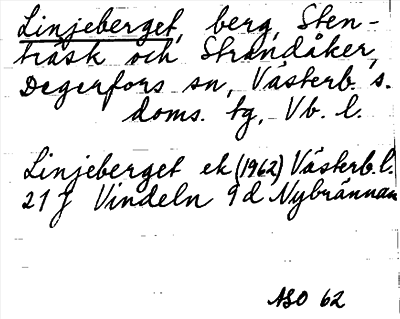 Linjeberget, berg, Sten-
träsk och Strandåker,
Degerfors sn, Västerb. s.
doms. tg, Vb. l.
Linjeberget ek (1962) Västerb. l.
21 J Vindeln 9 d Nybrännan
ASO 62